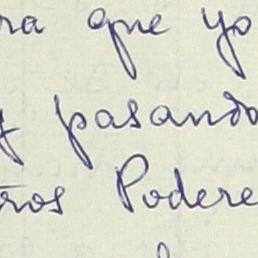 ra que yo
y pasando
ros Podere